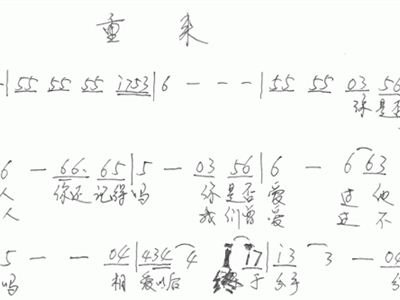 重来
- | 55 55 55 i753 | 6 - - - | 55 55 03 56
你是否
6 - 66. 65 | 5 - 03 56 | 6 - 6 63
人 你还记得吗 你是否爱 过他
人 我们曾爱 过不
5 - - 04 | 434 4 1 i7 | i3 3 - 04
吗 相爱以后 终于分手